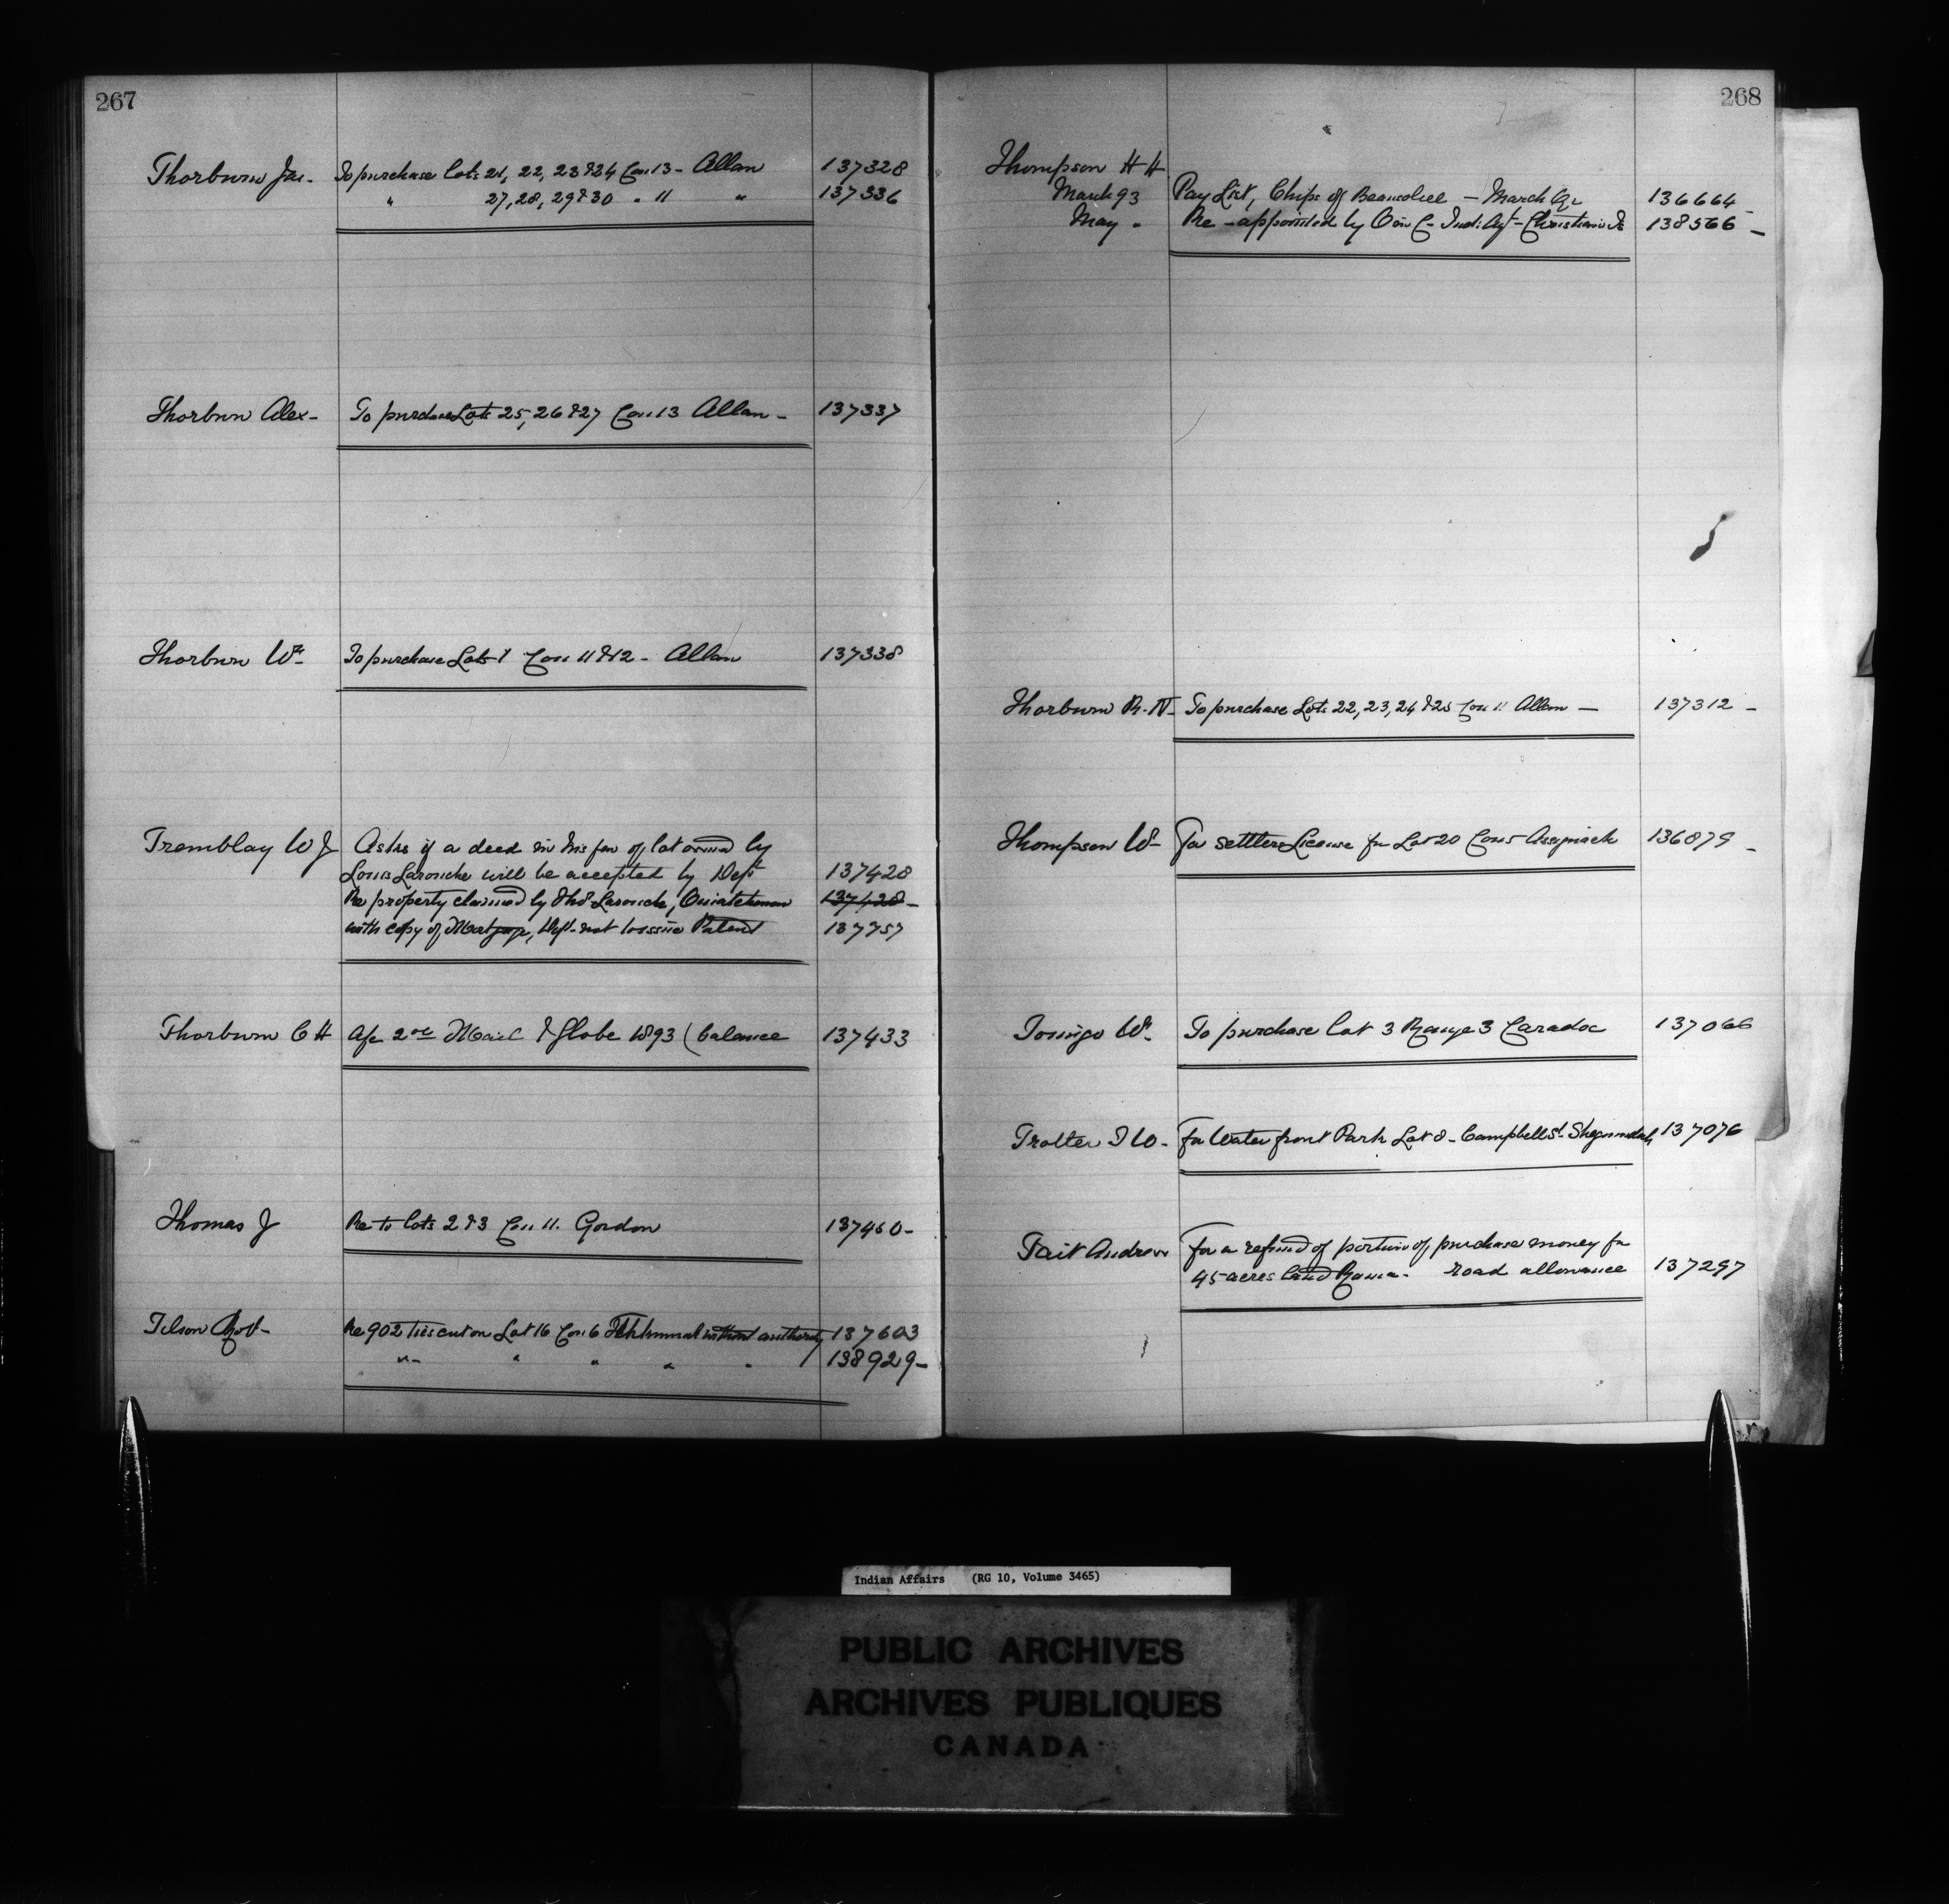 267
Thorburn Jas. To purchase Lots 21, 22, 23 & 24 Con 13 - Allan 137328
" 27, 28, 29 & 30 " 11 " 137336
Thorburn Alex - To purchase Lots 25, 26 & 27 Con 13 Allan - 137337
Thorburn Wm To purchase Lots 1 Con 11 & 12 - Allan 137338
Tremblay W J Asks if a deed in his fav of lot owned by
Louis Larouche will be accepted by Dept 137428
Re property claimed by Thos Larouche, Ouiatchouan 137428 -
with copy of Mortgage, Dept not to issue Patent 137757
Thorburn C H A/c 2 Mail & Globe 1893 (balance 137433
Thomas J Re to lots 2 & 3 Con 11. Gordon 137460 -
Tilson Robt - Re 902 ties cut on Lot 16 Con 6 without authority 137603
" " " " " 138929 -
268
Thompson H H
March 93 Pay List, Chips of Beausoleil - March Qr 136664 -
May " Re-appointed by O in C - Ind: Agt - Christian Is 138566 -
Thorburn R. N - To purchase Lots 22, 23, 24 & 25 Con 11 Allan - 137312 -
Thompson W - For settlers License for Lot 20 Con 5 Assiginack 136879 -
Tomigo Wm To purchase lot 3 Range 3 Caradoc 137066
Trotter T W - for Water front Park Lot 8 - Campbell St. Sheguiandah 137076
Tait Andrew for a refund of portion of, purchase money for
45 acres land Rama - road allowance 137297
Indian Affairs (RG 10, Volume 3465)
PUBLIC ARCHIVES
ARCHIVES PUBLIQUES
CANADA